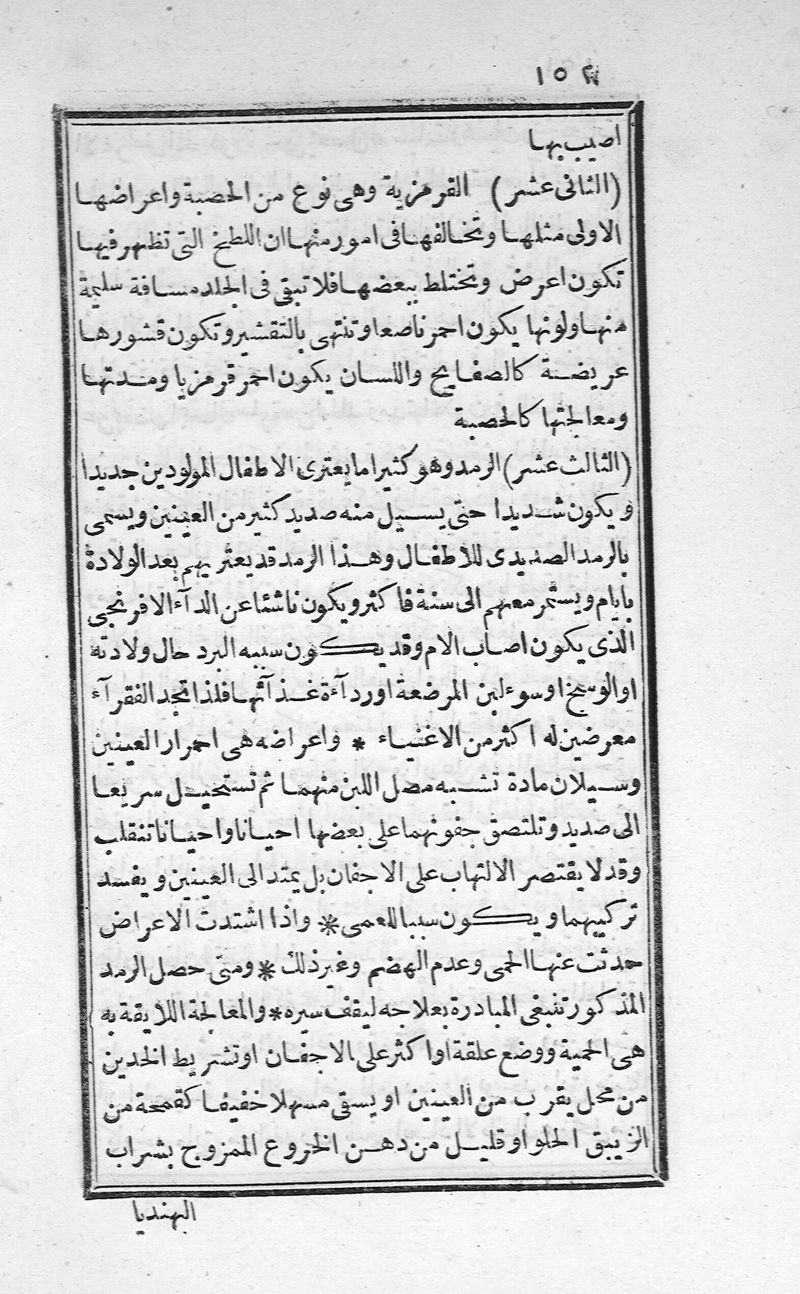 ١٥٢
اصيب بها
(الثانى عشر) القرمزية وهى نوع من الحصبة واعراضها
الاولى مثلها وتخالفها فى امور منها ان اللطخ التى تظهر فيها
تكون اعرض وتختلط ببعضها فلا تبقى فى الجلد مسافة سليمة
منها ولونها يكون احمر ناصعا وتنتهى بالتقشير وتكون قشورها
عريضة كالصفايح واللسان يكون احمر قرمزيا ومدتها
ومعالجتها كالحصبة
(الثالث عشر) الرمد وهو كثيرا ما يعترى الاطفال المولودين جديدا
ويكون شديدا حتى يسيل منه صديد كثير من العينين ويسمى
بالرمد الصديدى للاطفال وهذا الرمد قد يعتريهم بعد الولادة
بايام ويستمر معهم الى سنة فاكثر ويكون ناشئا عن الدآء الافرنجى
الذى يكون اصاب الام وقد يكون سببه البرد حال ولادته
او الوسخ او سوء لبن المرضعة او ردآءة غذآئها فلذا تجد الفقرآء
معرضين له اكثر من الاغنياء * واعراضه هى احمرار العينين
وسيلان مادة تشبه مصل اللبن منهما ثم تستحيل سريعا
الى صديد وتلتصق جفونهما على بعضها احيانا واحيانا تنقلب
وقد لا يقتصر الالتهاب على الاجفان بل يمتد الى العينين ويفسد
تركيبهما ويكون سببا للعمى * واذا اشتدت الاعراض
حدثت عنها الحمى وعدم الهضم وغير ذلك * ومتى حصل الرمد
المذكور تنبغى المبادرة بعلاجه ليقف سيره * والمعالجة اللايقة به
هى الحمية ووضع علقة او اكثر على الاجفان او تشريط الخدين
من محل يقرب من العينين او يسقى مسهلا خفيفا كقمحة من
الزيبق الحلو او قليل من دهن الخروع الممزوج بشراب
الهنديا